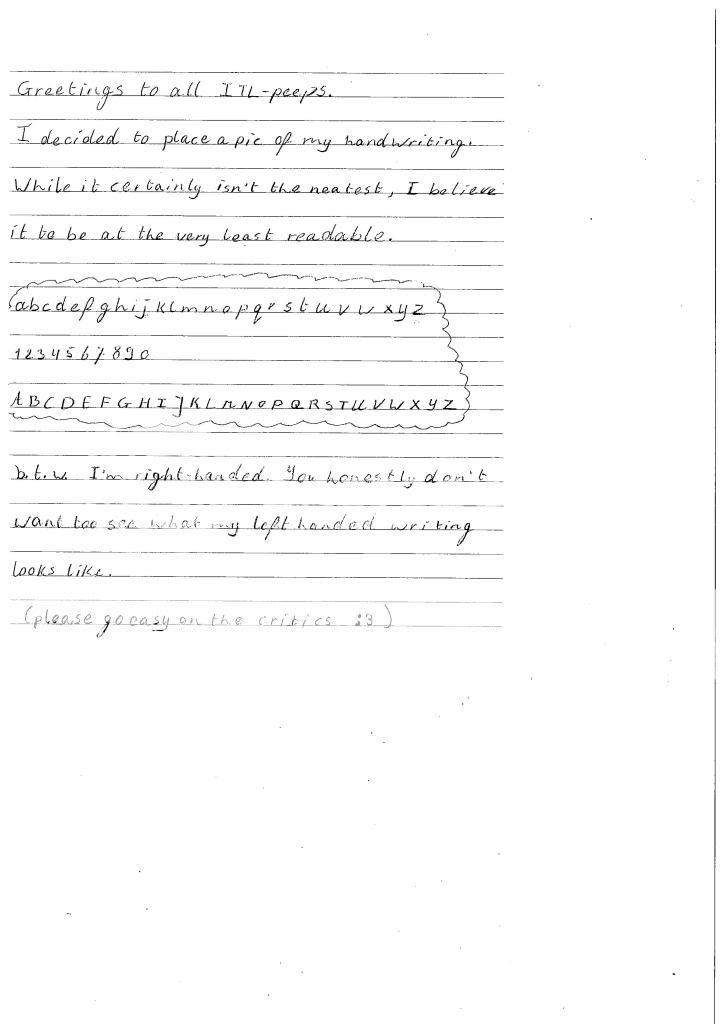 Greetings to all ITL-peeps.
I decided to place a pic of my handwriting.
While it certainly isn't the neatest, I believe
it to be at the very least readable.
a b c d e f g h i j k l m n o p q r s t u v w x y z
1 2 3 4 5 6 7 8 9 0
A B C D E F G H I J K L M N O P Q R S T U V W X Y Z
b.t.w. I'm right-handed. You honestly don't
want too see what my left handed writing
looks like.
(please go easy on the critics :3)